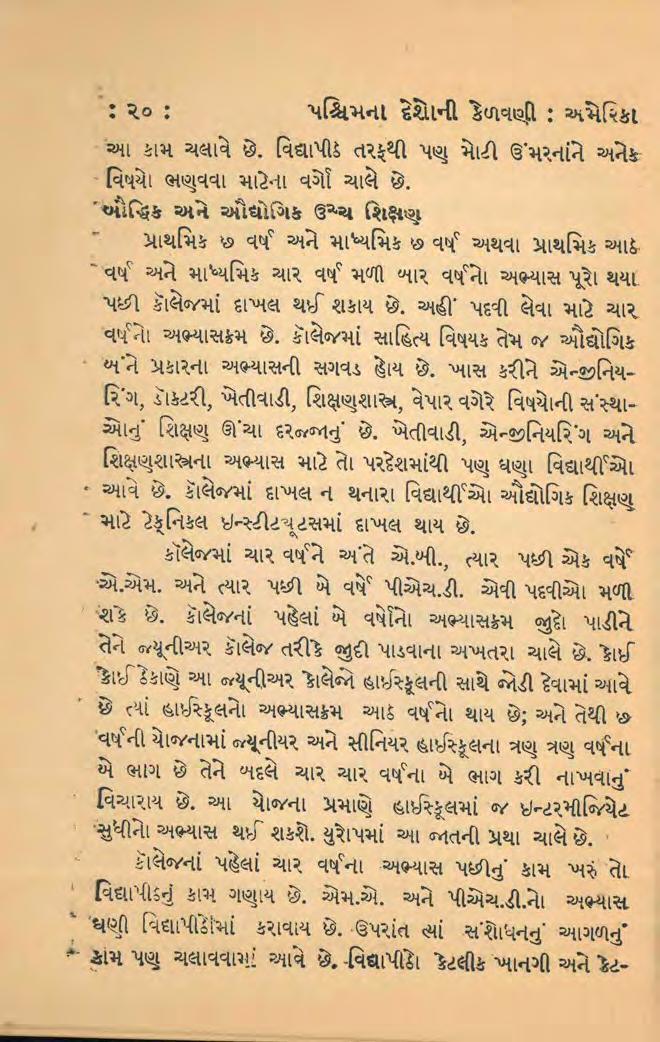 : ૨૦ : પશ્ચિમના દેશોની કેળવણી : અમેરિકા
આ કામ ચલાવે છે. વિદ્યાપીઠ તરફથી પણ મોટી ઉંમરનાંને અનેક
વિષયો ભણવવા માટેના વર્ગો ચાલે છે.
બૌદ્ધિક અને ઔદ્યોગિક ઉચ્ચ શિક્ષણ
પ્રાથમિક છ વર્ષ અને માધ્યમિક છ વર્ષ અથવા પ્રાથમિક આઠ
વર્ષ અને માધ્યમિક ચાર વર્ષ મળી બાર વર્ષનો અભ્યાસ પૂરો થયા
પછી કૉલેજમાં દાખલ થઈ શકાય છે. અહીં પદવી લેવા માટે ચાર
વર્ષનો અભ્યાસક્રમ છે. કૉલેજમાં સાહિત્ય વિષયક તેમ જ ઔદ્યોગિક
બંને પ્રકારના અભ્યાસની સગવડ હોય છે. ખાસ કરીને એન્જીનિય-
રિંગ, ડૉક્ટરી, ખેતીવાડી, શિક્ષણશાસ્ત્ર, વેપાર વગેરે વિષયોની સંસ્થા-
ઓનું શિક્ષણ ઊંચા દરજ્જાનું છે. ખેતીવાડી, એન્જીનિયરિંગ અને
શિક્ષણશાસ્ત્રના અભ્યાસ માટે તો પરદેશમાંથી પણ ઘણા વિદ્યાર્થીઓ
આવે છે. કૉલેજમાં દાખલ ન થનારા વિદ્યાર્થીઓ ઔદ્યોગિક શિક્ષણ
માટે ટેક્નિકલ ઇન્સ્ટીટ્યૂટસમાં દાખલ થાય છે.
કૉલેજમાં ચાર વર્ષને અંતે એ.બી., ત્યાર પછી એક વર્ષે
એ.એમ. અને ત્યાર પછી બે વર્ષે પીએચ.ડી. એવી પદવીઓ મળી
શકે છે. કૉલેજનાં પહેલાં બે વર્ષોનો અભ્યાસક્રમ જુદો પાડીને
તેને જ્યૂનીઅર કૉલેજ તરીકે જુદી પાડવાના અખતરા ચાલે છે. કોઈ
કોઈ ઠેકાણે આ જ્યૂનીઅર કોલેજો હાઈસ્કૂલની સાથે જોડી દેવામાં આવે
છે ત્યાં હાઈસ્કૂલનો અભ્યાસક્રમ આઠ વર્ષનો થાય છે; અને તેથી છ
વર્ષની યોજનામાં જ્યૂનીયર અને સીનિયર હાઈસ્કૂલના ત્રણ ત્રણ વર્ષના
બે ભાગ છે તેને બદલે ચાર ચાર વર્ષના બે ભાગ કરી નાખવાનું
વિચારાય છે. આ યોજના પ્રમાણે હાઈસ્કૂલમાં જ ઇન્ટરમીજિયેટ
સુધીનો અભ્યાસ થઈ શકશે. યુરોપમાં આ જાતની પ્રથા ચાલે છે.
કૉલેજનાં પહેલાં ચાર વર્ષના અભ્યાસ પછીનું કામ ખરું તો
વિદ્યાપીઠનું કામ ગણાય છે. એમ.એ. અને પીએચ.ડી.નો અભ્યાસ
ઘણી વિદ્યાપીઠોમાં કરાવાય છે. ઉપરાંત ત્યાં સંશોધનનું આગળનું
કામ પણ ચલાવવામાં આવે છે. વિદ્યાપીઠો કેટલીક ખાનગી અને કેટ-